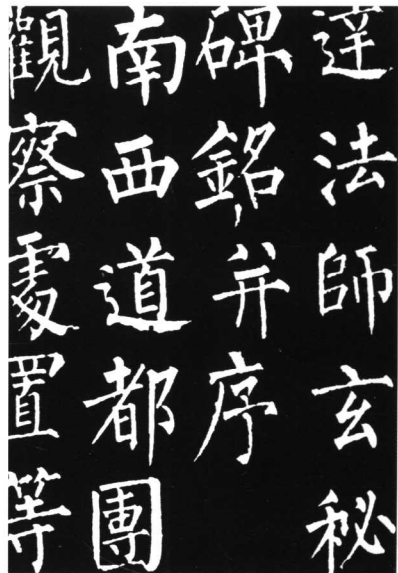 達法師玄秘
碑銘并序
南西道都團
觀察處置等